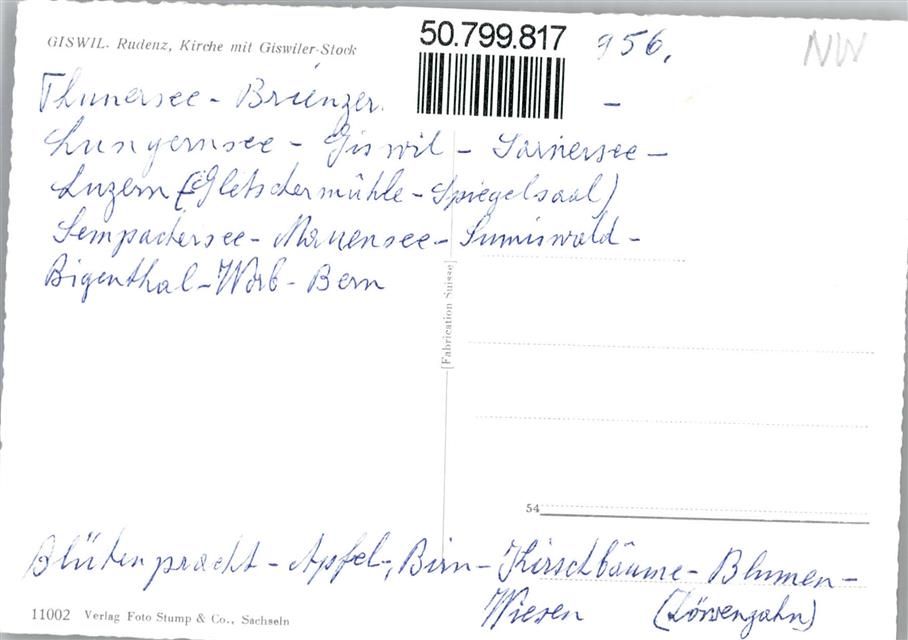 GISWIL. Rudenz, Kirche mit Giswiler-Stock
50.799.817
956.
NW
Thunersee - Brienzer. -
Lungernsee - Giswil - Sarnersee -
Luzern (Gletschermühle - Spiegelsaal)
Sempachersee - Mauensee - Sumiswald -
Bigenthal - Worb - Bern
[Fabrication Suisse]
54
Blütenpracht - Apfel-, Birn - Kirschbäume - Blumen -
Wiesen (Löwenzahn)
11002 Verlag Foto Stump & Co., Sachseln